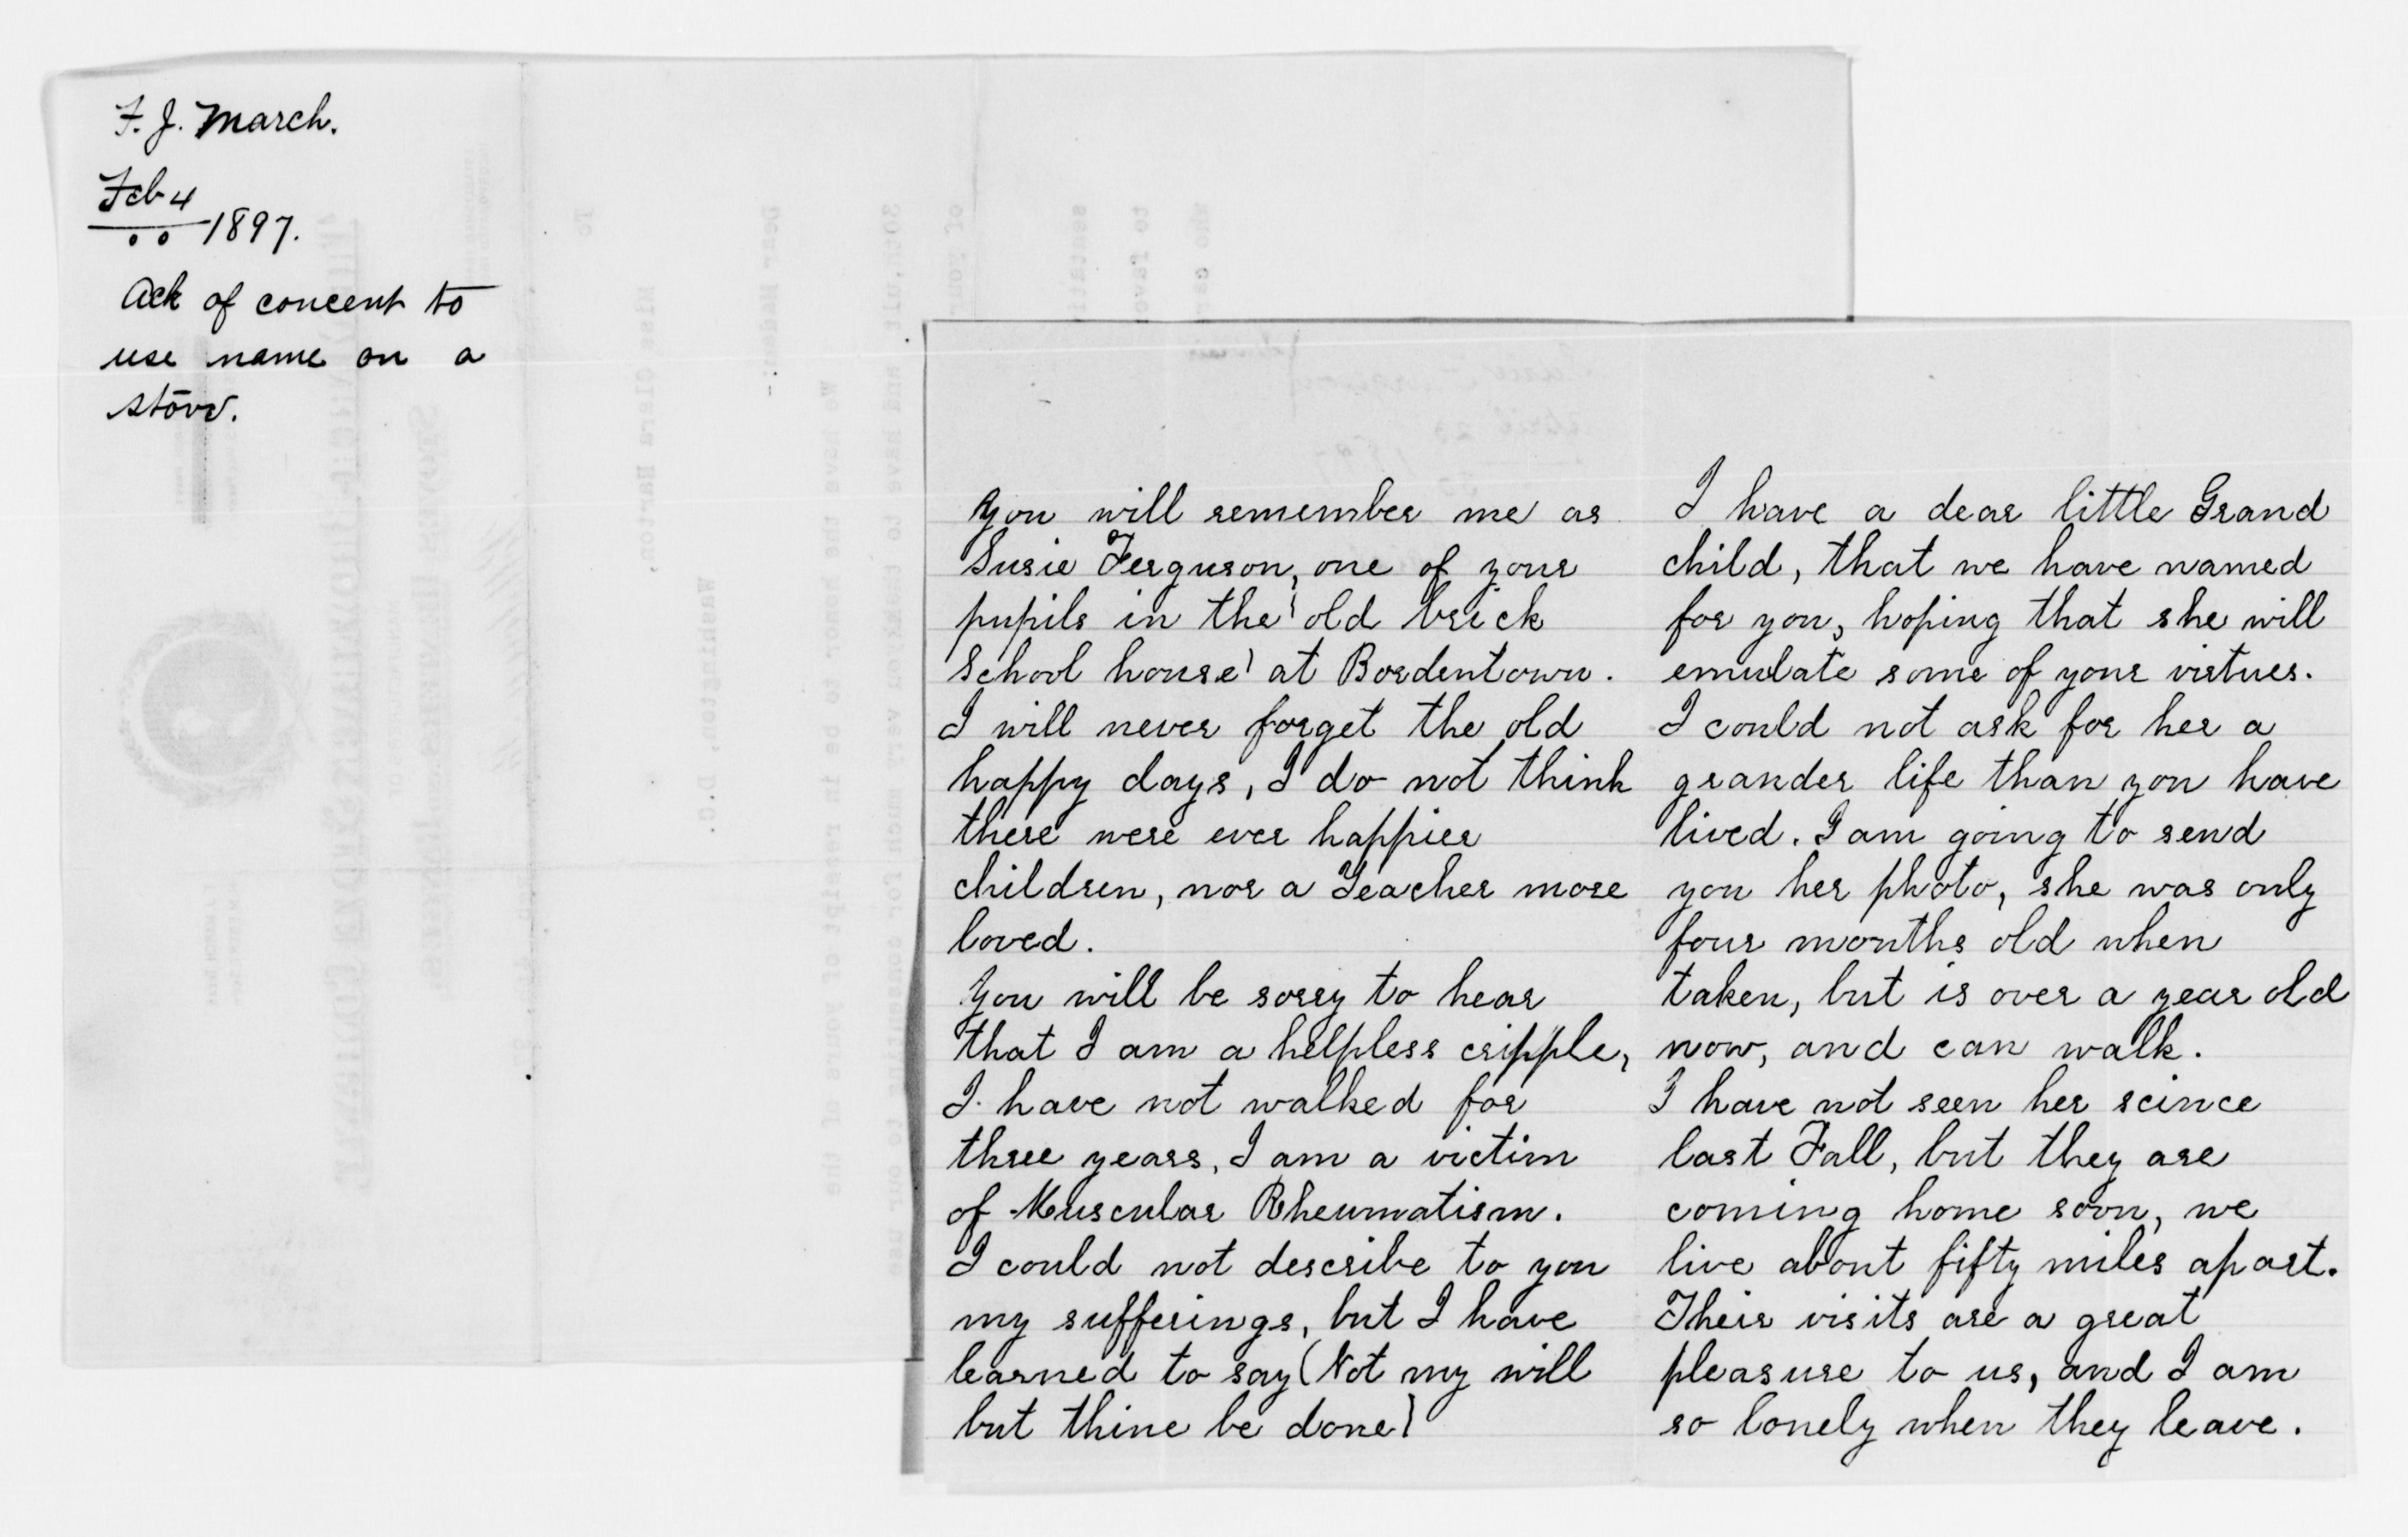 F. J. March.
Feb 4
1897.
Ack of concent to
use name on a
stove.
You will remember me as
Susie Ferguson, one of your
pupils in the 'old brick
School house' at Bordentown.
I will never forget the old
happy days, I do not think
there were ever happier
children, nor a Teacher more
loved.
You will be sorry to hear
that I am a helpless cripple,
I have not walked for
three years, I am a victim
of Muscular Rheumatism.
I could not describe to you
my sufferings, but I have
learned to say (Not my will
but thine be done)
I have a dear little Grand
child, that we have named
for you, hoping that she will
emulate some of your virtues.
I could not ask for her a
grander life than you have
lived. I am going to send
you her photo, she was only
four months old when
taken, but is over a year old
now, and can walk.
I have not seen her scince
last Fall, but they are
coming home soon, we
live about fifty miles apart.
Their visits are a great
pleasure to us, and I am
so lonely when they leave.